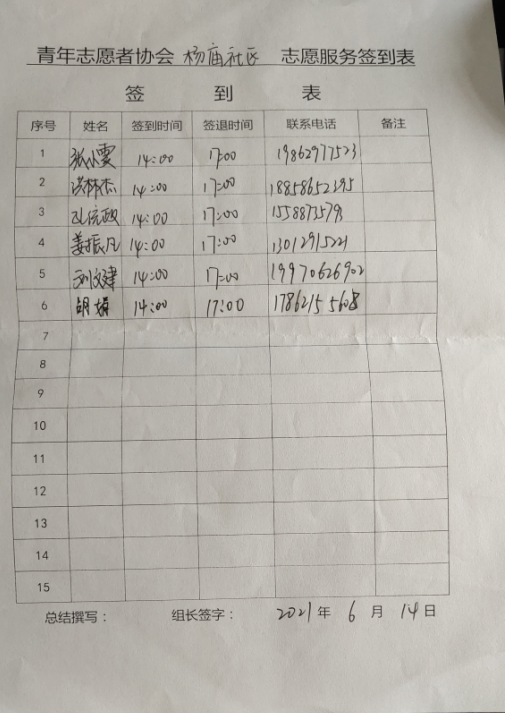 青年志愿者协会 杨庙社区 志愿服务签到表
签 到 表
序号 姓名 签到时间 签退时间 联系电话 备注
1 14:00 17:00 19862977523
2 14:00 17:00 18858652395
3 14:00 17:00
4 姜振凡 14:00 17:00
5 刘文建 14:00 17:00 19970626902
6 胡娟 14:00 17:00 17862155608
7
8
9
10
11
12
13
14
15
总结撰写： 组长签字： 2021 年 6 月 14 日